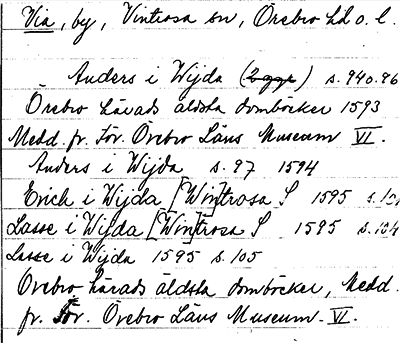 Via, by, Vintrosa sn, Örebro hd o. l.
Anders i Wijda ( ) s. 94 o. 96
Örebro härads äldsta domböcker 1593
Medd. fr. För. Örebro Läns Museum VI.
Anders i Wijda s. 97 1594
Erich i Wijda [Win]trosa S 1595 s.
Lasse i Wijda [Win]trosa S 1595 s. 104
Lasse i Wijda 1595 s. 105
Örebro härads äldsta domböcker, Medd.
fr. För. Örebro Läns Museum VI.